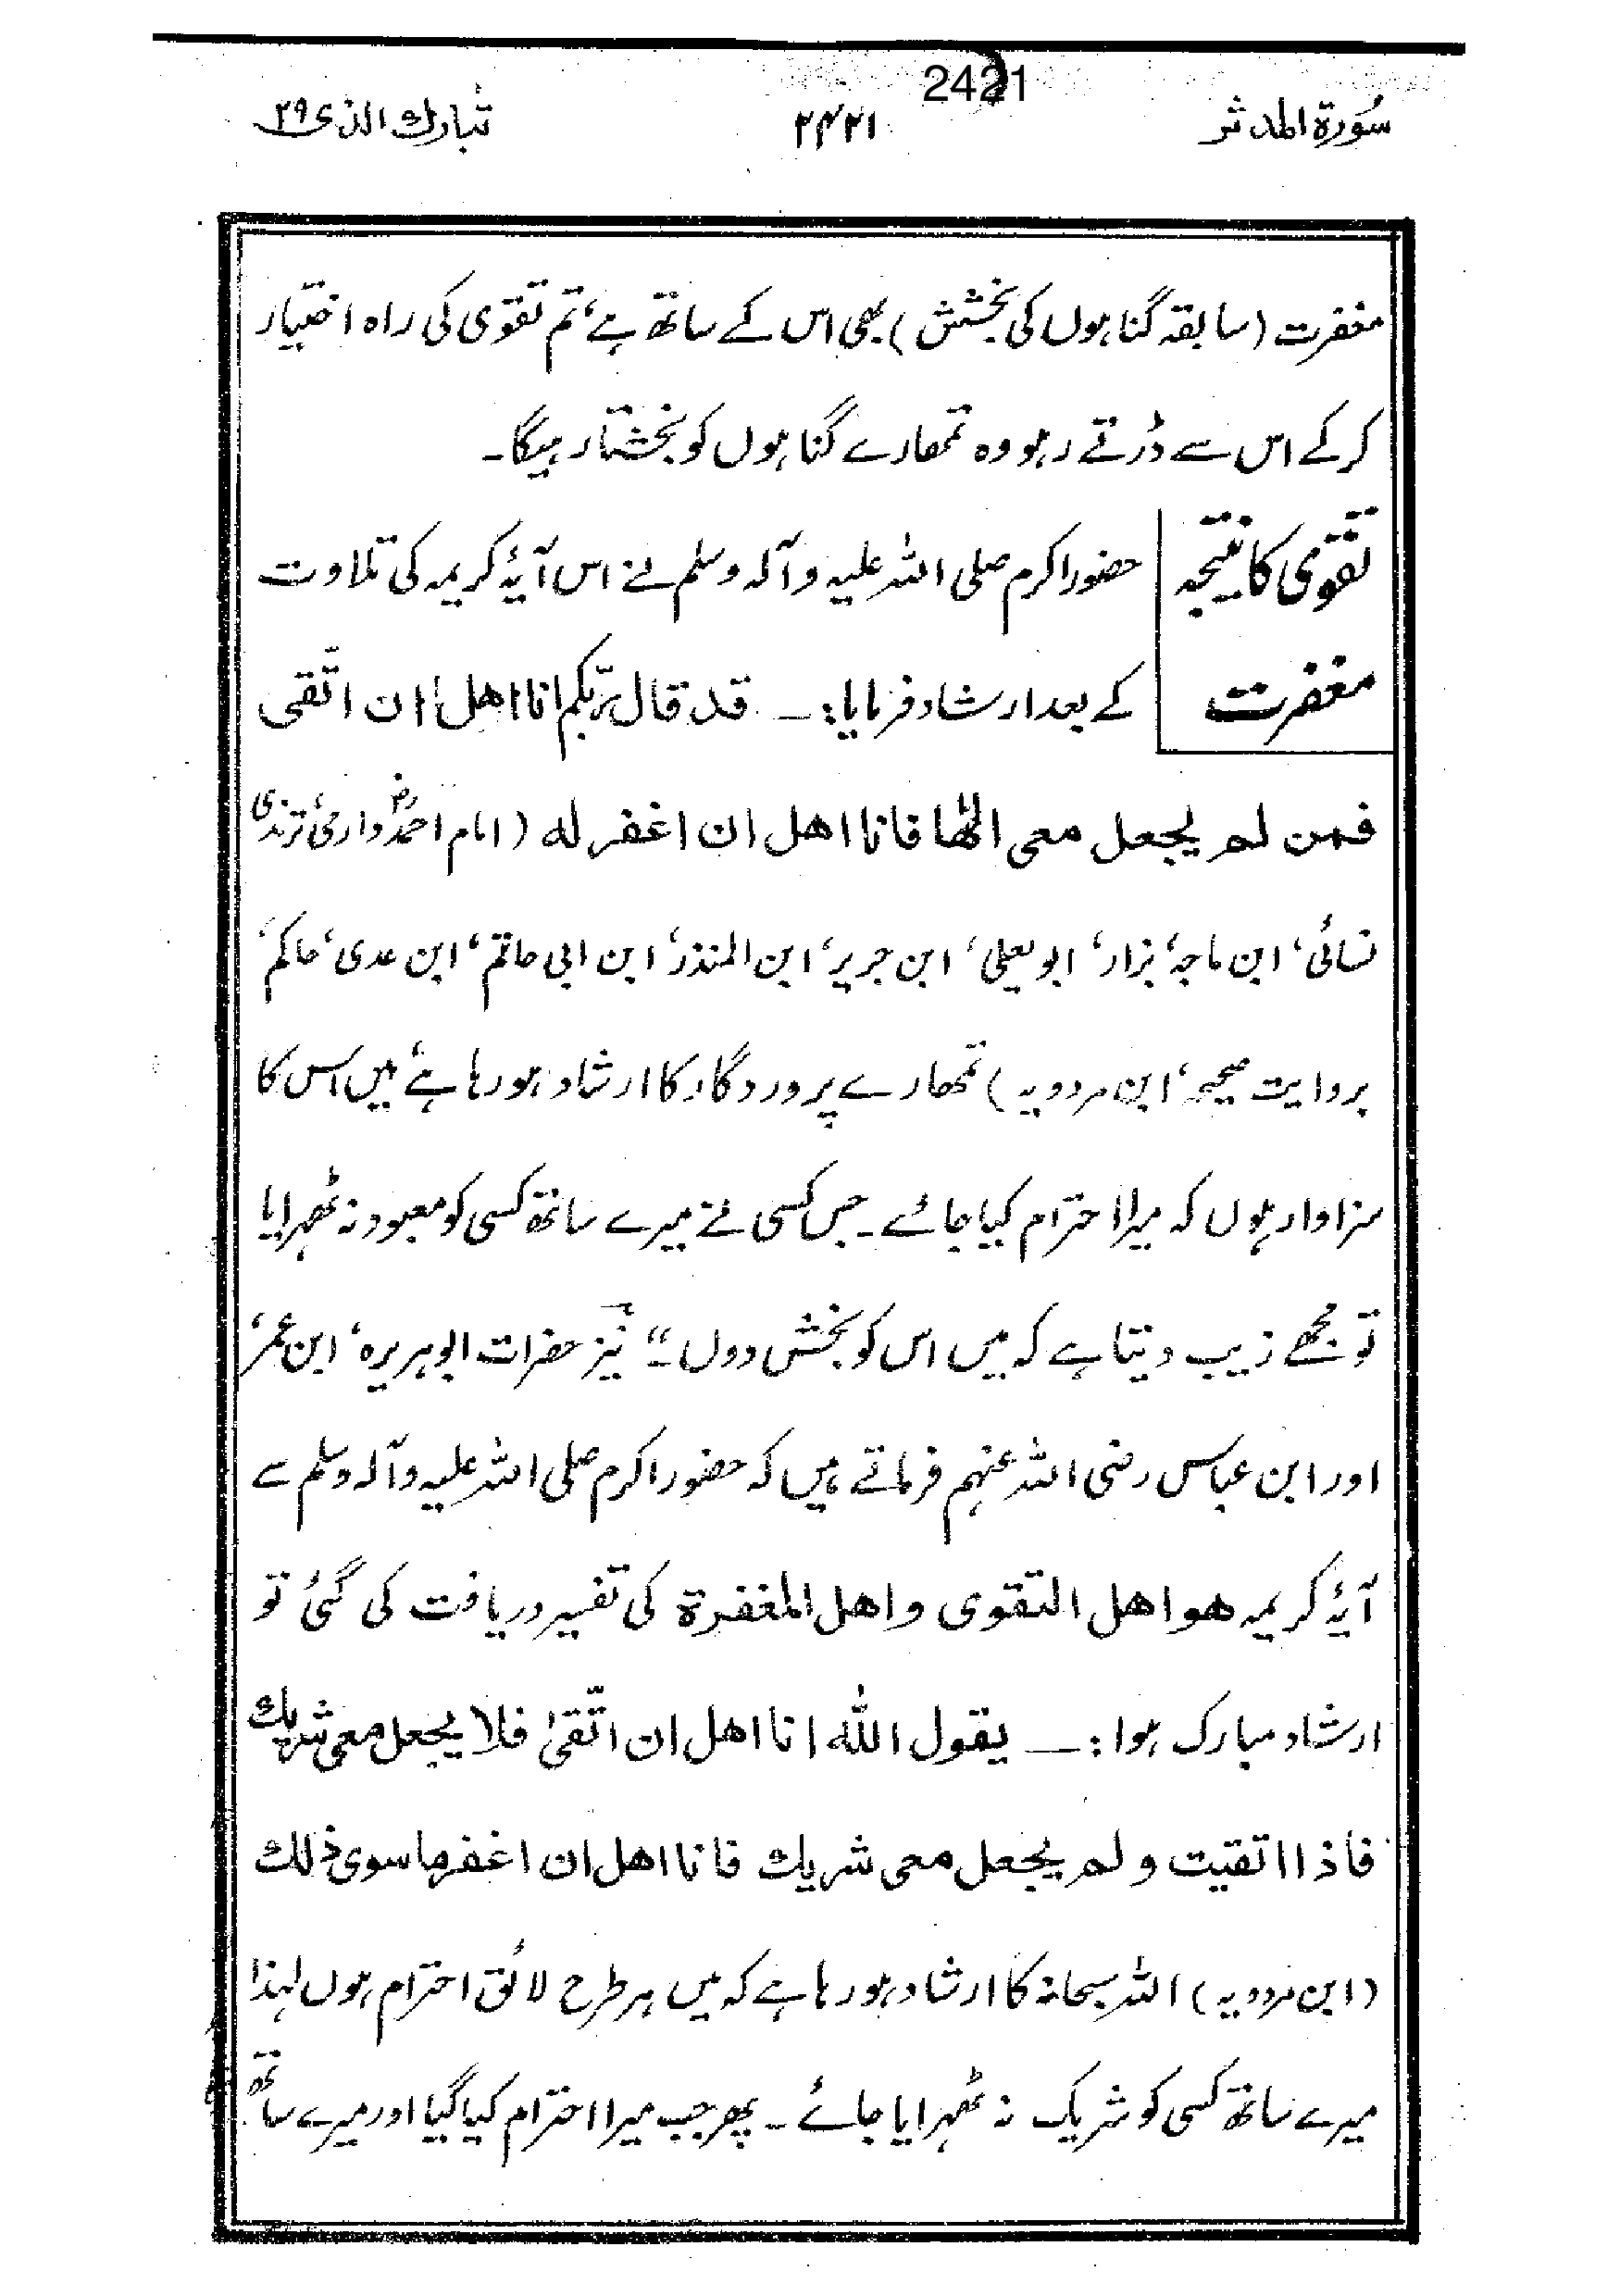 2421
سُورۃ المدثر ۲۴۲۱ تبارك الذی ۲۹
مغفرت (سابقہ گناہوں کی بخشش) بھی اس کے ساتھ ہے، تم تقوی کی راہ اختیار
کر کے اس سے ڈرتے رہو وہ تمھارے گناہوں کو بخشتا رہیگا۔
تقوی کا نتیجہ
مغفرت
حضور اکرم صلی اللہ علیہ و آلہ وسلم نے اس آیۂ کریمہ کی تلاوت
کے بعد ارشاد فرمایا:۔ قد قال ربّکم انا اهل ان اتّقی
فمن لم یجعل معی الٰھا فانا اهل ان اغفر له (امام احمدؓ دارمی، ترمذی
نسائی، ابن ماجہ، بزار، ابو یعلی، ابن جریر، ابن المنذر، ابن ابی حاتم، ابن عدی، حاکم،
بروایت صحیحہ، ابن مردویہ) تمھارے پروردگار کا ارشاد ہو رہا ہے، میں اس کا
سزاوار ہوں کہ میرا احترام کیا جائے۔ جس کسی نے میرے ساتھ کسی کو معبود نہ ٹھرایا
تو مجھے زیب دیتا ہے کہ میں اس کو بخش دوں۔“ نیز حضرات ابو ہریرہ، ابن عمر،
اور ابن عباس رضی اللہ عنہم فرماتے ہیں کہ حضور اکرم صلی اللہ علیہ و آلہ وسلم سے
آیۂ کریمہ هو اهل التقوی و اهل المغفرة کی تفسیر دریافت کی گئی تو
ارشاد مبارک ہوا:۔ یقول اللّٰہ انا اهل ان اتّقیٰ فلا یجعل معی شریك
فاذا اتقیت و لم یجعل معی شریك فانا اهل ان اغفر ما سوی ذٰلك
(ابن مردویہ) اللہ سبحانہ کا ارشاد ہو رہا ہے کہ میں ہر طرح لائق احترام ہوں لہذا
میرے ساتھ کسی کو شریک نہ ٹھہرایا جائے۔ پھر جب میرا احترام کیا گیا اور میرے ساتھ